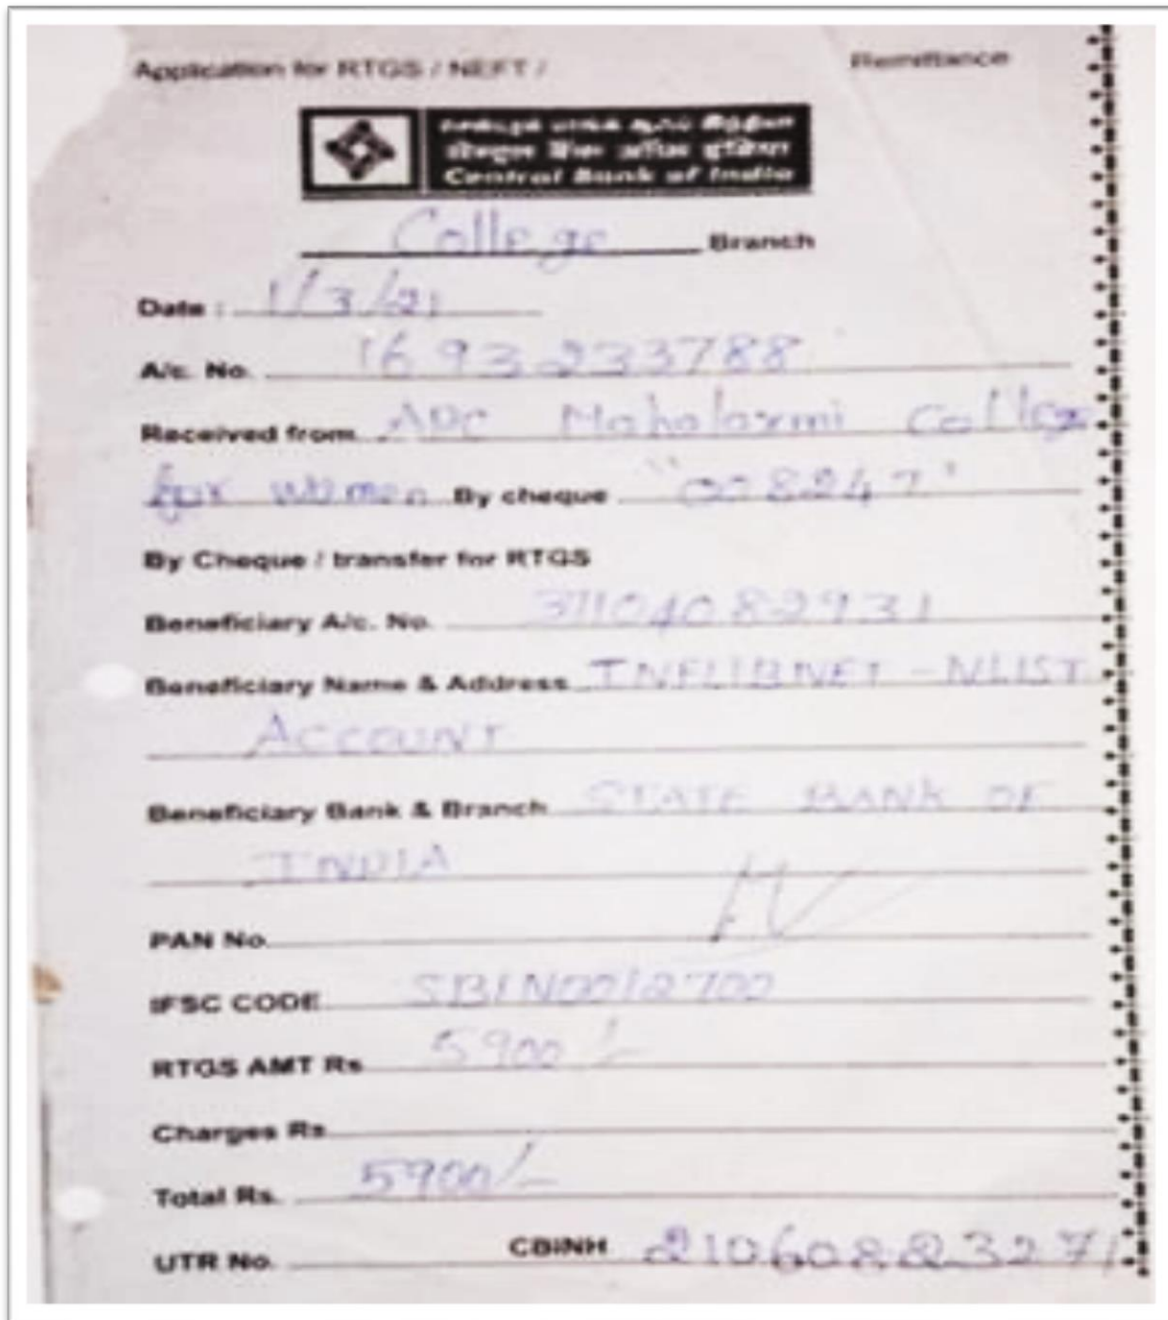 Application for RTGS / NEFT / Remittance
சென்ட்ரல் பாங்க் ஆஃப் இந்தியா
सेन्ट्रल बैंक ऑफ इंडिया
Central Bank of India
College Branch
Date : 1/3/21
A/c. No. 1693233788
Received from APC Mahalaxmi College
for women By cheque "008247"
By Cheque / transfer for RTGS
Beneficiary A/c. No. 37104082931
Beneficiary Name & Address INFLIBNET - NLIST
ACCOUNT
Beneficiary Bank & Branch STATE BANK OF
INDIA
PAN No.
IFSC CODE SBIN0012700
RTGS AMT Rs 5900/-
Charges Rs
Total Rs. 5900/-
UTR No. CBINH 21060823271